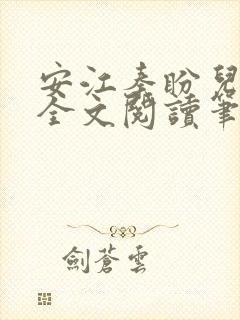 安江秦盼兒
全文閱讀筆
劍蒼雲